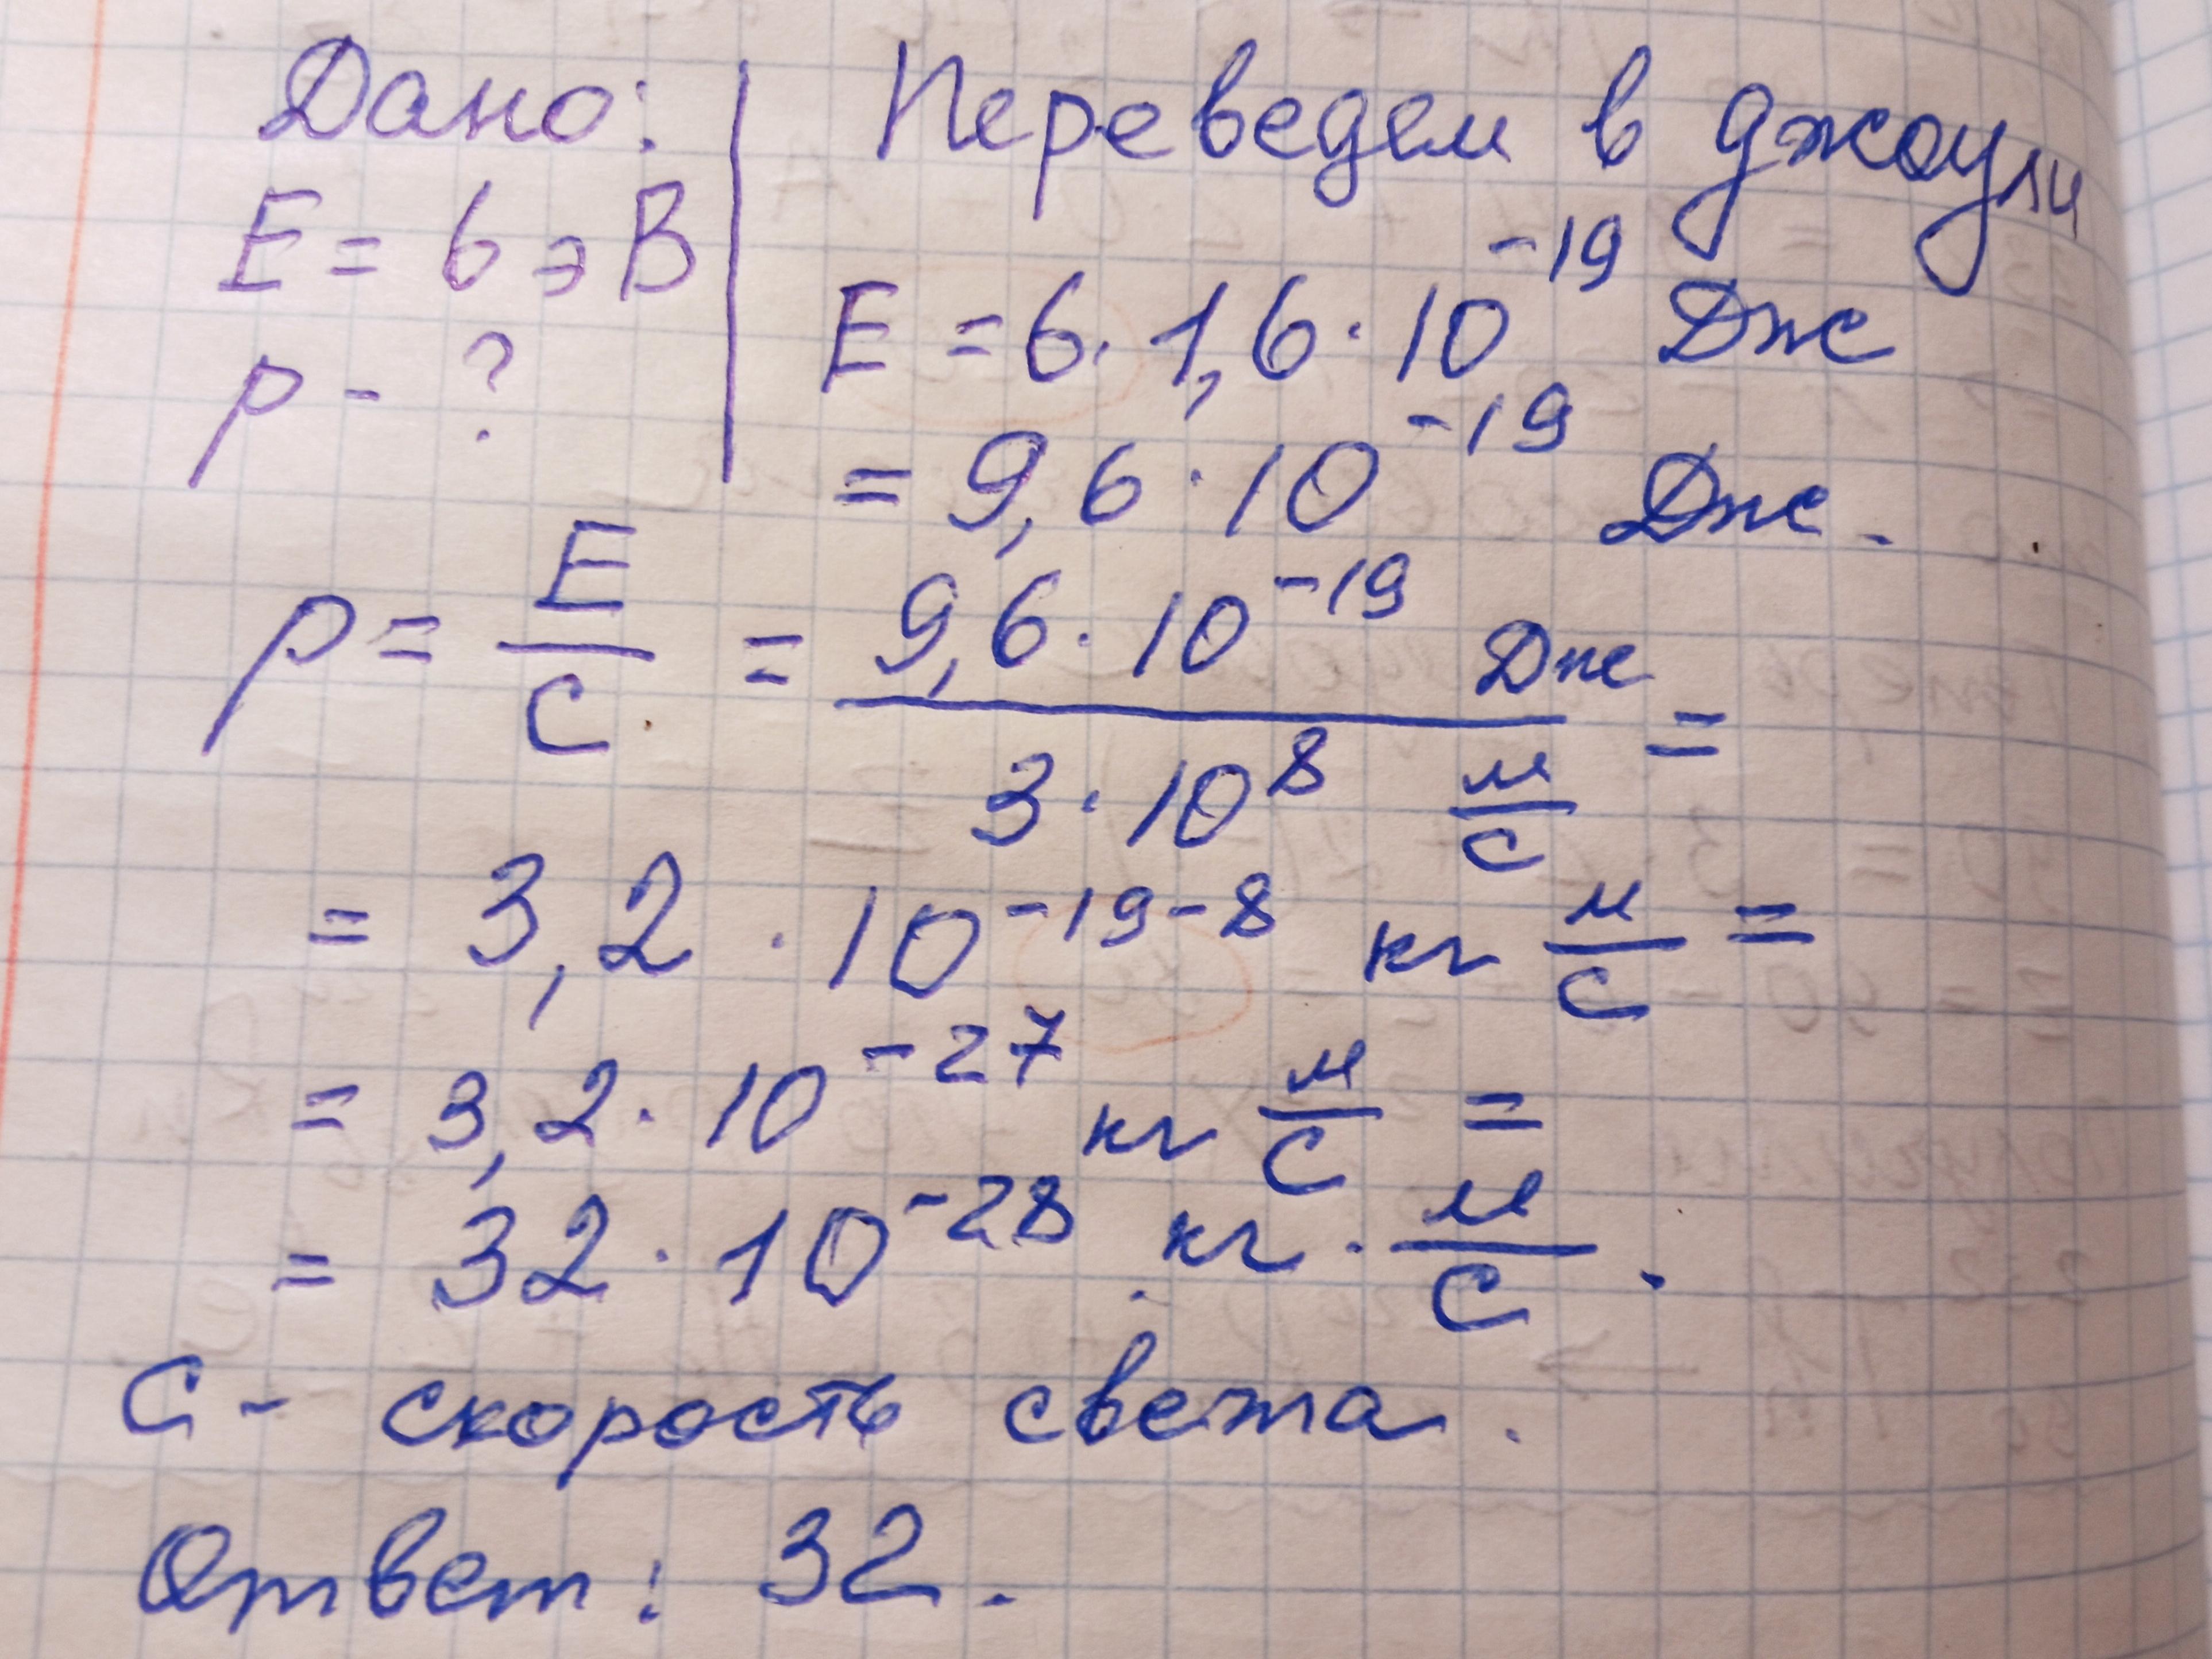 Дано:
E = 6 эВ
p - ?
Переведем в джоули
E = 6 · 1,6 · 10⁻¹⁹ Дж
= 9,6 · 10⁻¹⁹ Дж.
p = E/c = 9,6 · 10⁻¹⁹ Дж / 3 · 10⁸ м/с =
= 3,2 · 10⁻¹⁹⁻⁸ кг м/с =
= 3,2 · 10⁻²⁷ кг м/с =
= 32 · 10⁻²⁸ кг · м/с.
С - скорость света.
Ответ: 32.